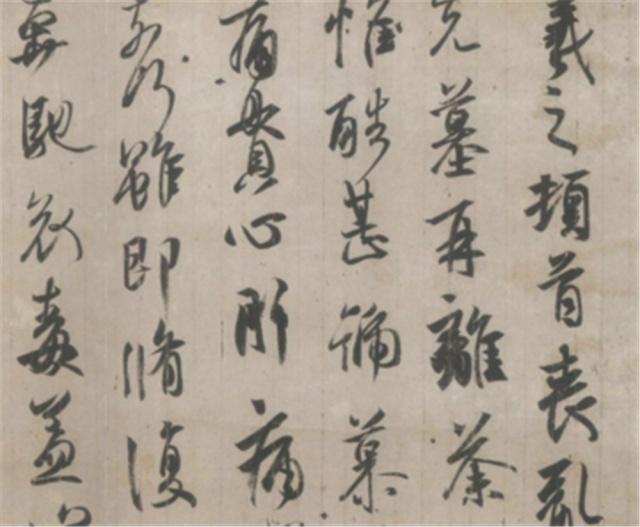 羲之頓首喪亂
先墓再離荼
惟酷甚號慕
痛貫心肝痛
奈何雖即脩復
奔馳哀毒益